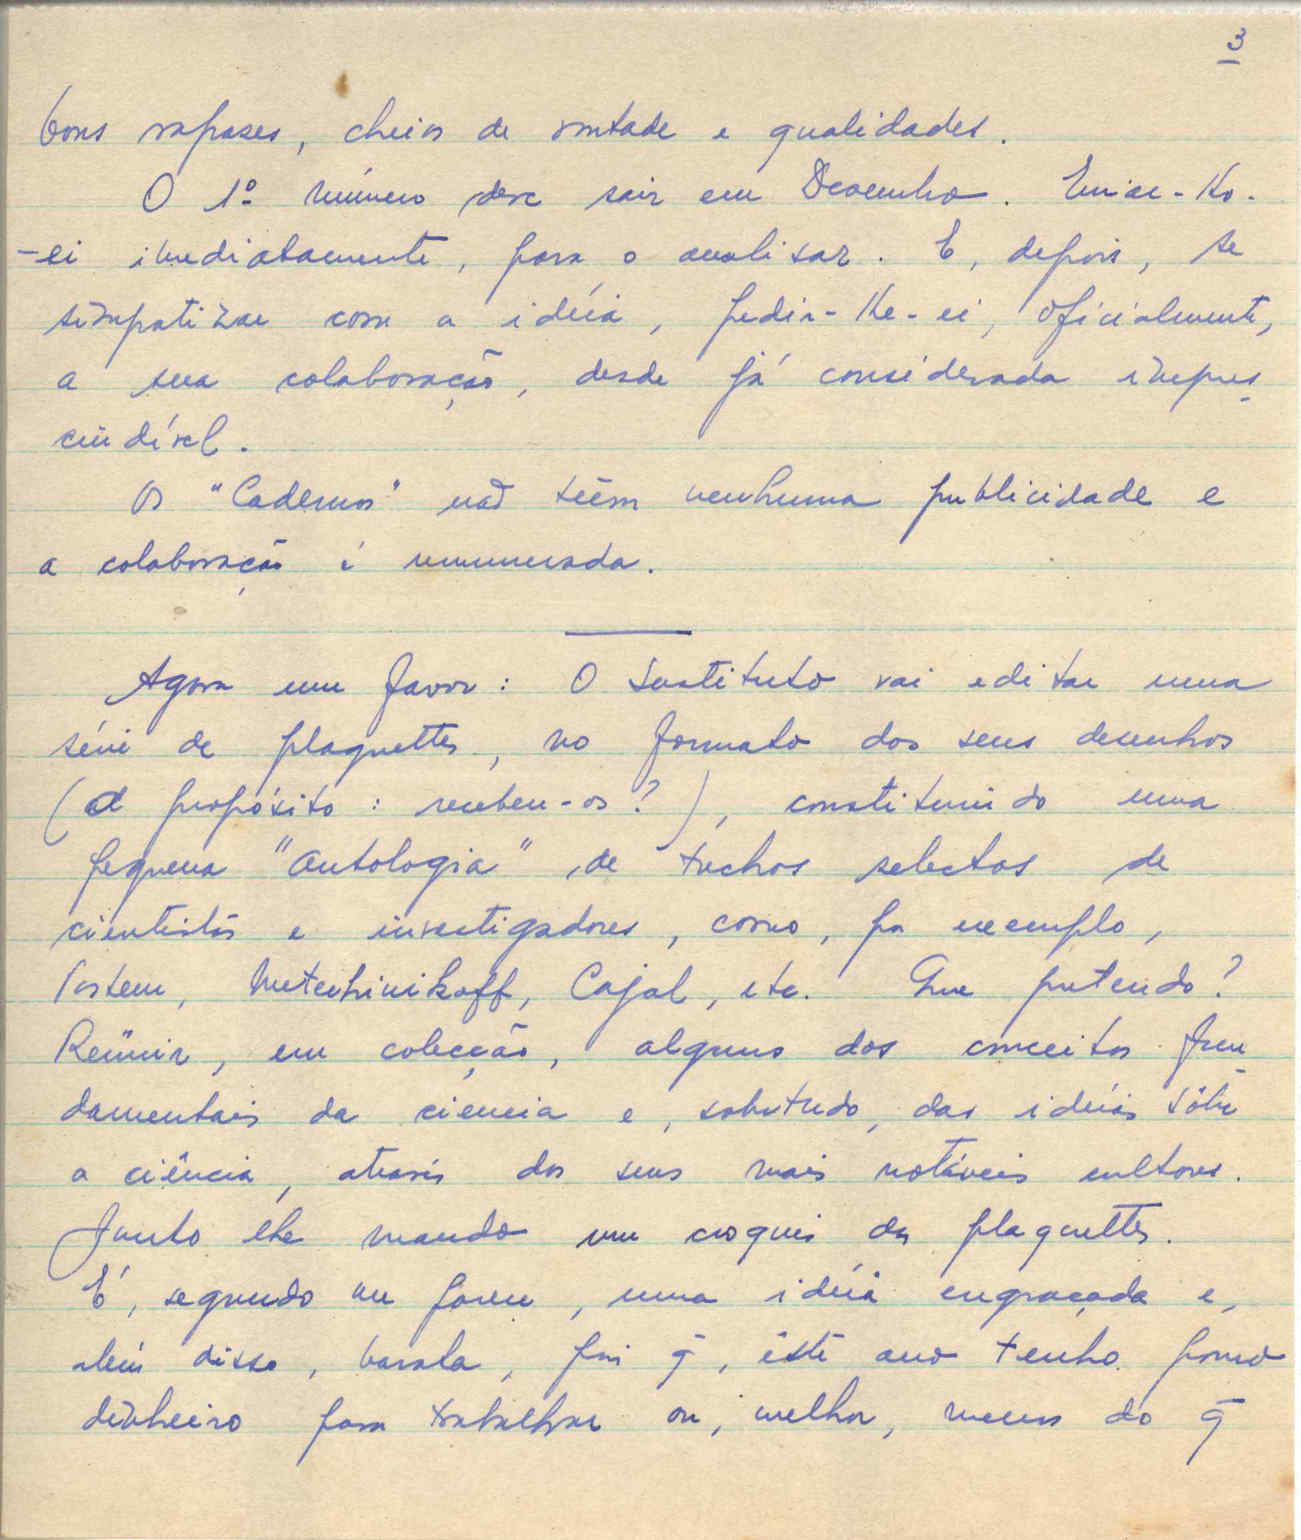 3
bons rapazes, cheios de vontade e qualidades.
O 1º número deve sair em Dezembro. Enviar-lho-
-ei imediatamente, para o analisar. E, depois, se
simpatizar com a idéia, pedir-lhe-ei, oficialmente,
a sua colaboração, desde já considerada impres-
cindível.
Os "Cadernos" não teêm nenhuma publicidade e
a colaboração é remunerada.
Agora um favor: O Instituto vai editar uma
série de plaquettes, no formato dos seus desenhos
(A propósito: recebeu-os?), constituindo uma
pequena "Antologia" de trechos selectos de
cientistas e investigadores, como, por exemplo,
Pasteur, Metchinikoff, Cajal, etc. Que pretendo?
Reünir, em colecção, alguns dos conceitos fun-
damentais da ciência e, sobretudo, das idéias sôbre
a ciência, através dos seus mais notáveis cultores.
Junto lhe mando um croquis das plaquettes.
É, segundo me parece, uma idéia engraçada e,
além disso, barata, pois q̄, êste ano tenho pouco
dinheiro para trabalhar ou, melhor, menos do q̄